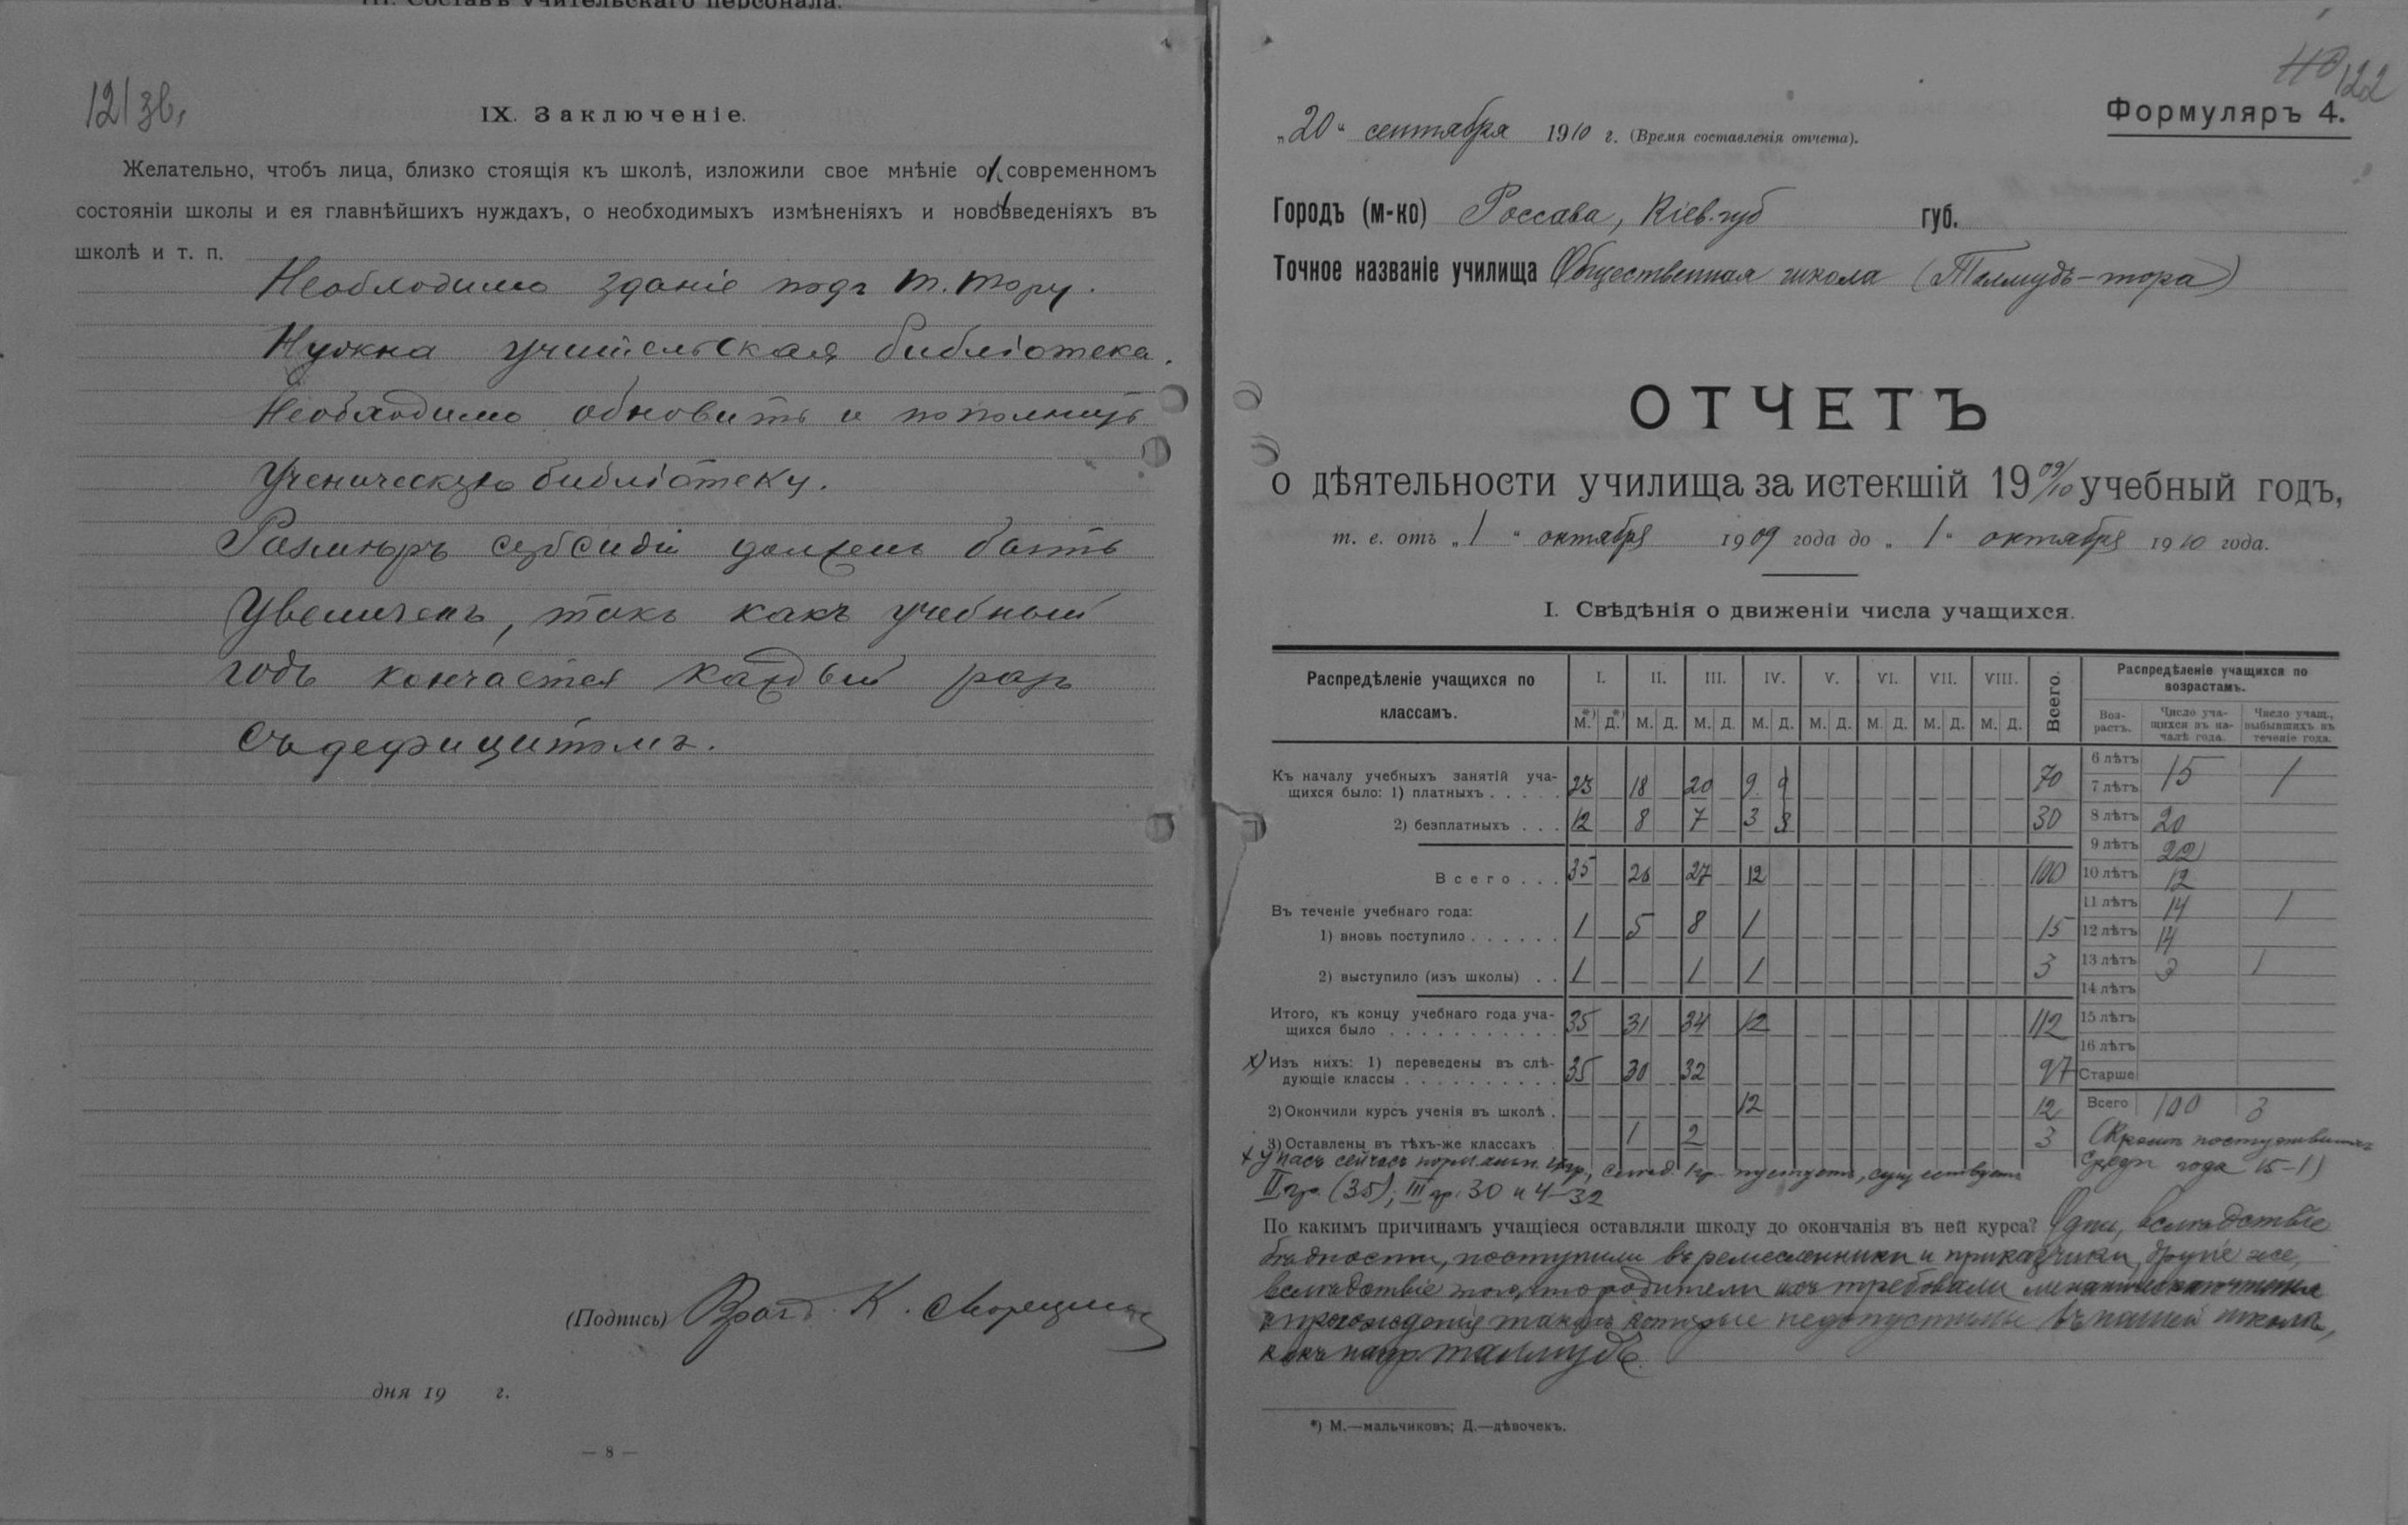 III. Составъ учительскаго персонала.
121 зв.
IX. Заключеніе.
Желательно, чтобъ лица, близко стоящія къ школѣ, изложили свое мнѣніе о современномъ
состояніи школы и ея главнѣйшихъ нуждахъ, о необходимыхъ измѣненіяхъ и нововведеніяхъ въ
школѣ и т. п.
Необходимо зданіе подъ т. тору.
Нужна учительская библіотека.
Необходимо обновить и пополнить
ученическую библіотеку.
Размѣръ субсидіи долженъ быть
увеличенъ, такъ какъ учебный
годъ кончается каждый разъ
съ дефицитомъ.
(Подпись) К.
дня 19 г.
— 8 —
110 122
Формуляръ 4.
„20“ сентября 1910 г. (Время составленія отчета).
Городъ (м-ко) Россава, Кіев. губ губ.
Точное названіе училища Общественная школа (Талмудъ-тора)
ОТЧЕТЪ
о дѣятельности училища за истекшій 1909/10 учебный годъ,
т. е. отъ „1“ октября 1909 года до „1“ октября 1910 года.
I. Свѣдѣнія о движеніи числа учащихся.
Распредѣленіе учащихся по классамъ. I. II. III. IV. V. VI. VII. VIII. Всего.
М.*) Д.*) М. Д. М. Д. М. Д. М. Д. М. Д. М. Д. М. Д.
Къ началу учебныхъ занятій уча-
щихся было: 1) платныхъ . . . . . 23 18 20 9 9 70
2) безплатныхъ . . . 12 8 7 3 3 30
Всего . . . 35 26 27 12 100
Въ теченіе учебнаго года:
1) вновь поступило . . . . . . 1 5 8 1 15
2) выступило (изъ школы) . . 1 — 1 1 3
Итого, къ концу учебнаго года уча-
щихся было . . . . . . . . . . . 35 31 34 12 112
х) Изъ нихъ: 1) переведены въ слѣ-
дующіе классы . . . . . . . . . . 35 30 32 97
2) Окончили курсъ ученія въ школѣ . 12 12
3) Оставлены въ тѣхъ-же классахъ 1 2 3
Распредѣленіе учащихся по
возрастамъ.
Воз-
растъ. Число уча-
щихся въ на-
чалѣ года. Число учащ.,
выбывшихъ въ
теченіе года.
6 лѣтъ
7 лѣтъ 15 1
8 лѣтъ 20
9 лѣтъ 22
10 лѣтъ 12
11 лѣтъ 14 1
12 лѣтъ 14
13 лѣтъ 3 1
14 лѣтъ
15 лѣтъ
16 лѣтъ
Старше
Всего 100 3
(Кромѣ поступившихъ
среди года 15-1)
х У насъ сейчасъ 1 гр. пустуетъ, существуетъ
II гр. (35); III гр. 30 и 4-32
По какимъ причинамъ учащіеся оставляли школу до окончанія въ ней курса? Одни, вслѣдствіе
бѣдности, поступили въ ремесленники и приказчики, другіе же,
вслѣдствіе того, что родители ихъ требовали
и прохожденія которые недопустимы въ нашей школѣ,
какъ напр. талмудъ.
*) М.—мальчиковъ; Д.—дѣвочекъ.